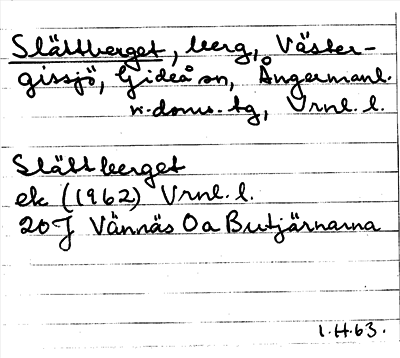 Slättberget, berg, Väster-
gissjö, Gideå sn, Ångermanl.
n. doms. tg, Vrnl. l.
Slättberget
ek (1962) Vrnl. l.
20 J Vännäs Oa Butjärnarna
1.H.63.